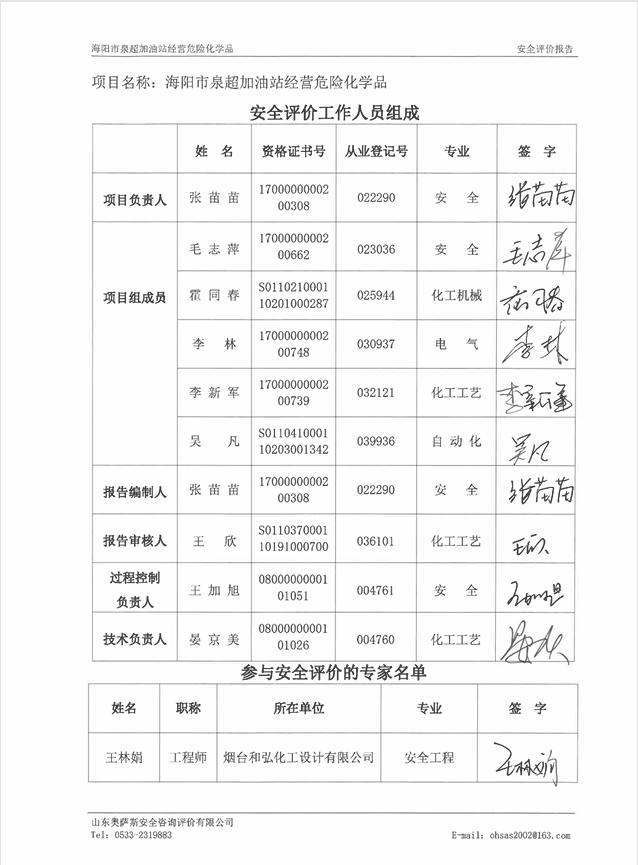 海阳市泉超加油站经营危险化学品 安全评价报告
项目名称：海阳市泉超加油站经营危险化学品
安全评价工作人员组成
姓 名 资格证书号 从业登记号 专业 签 字
项目负责人 张苗苗 17000000002 00308 022290 安 全 张苗苗
项目组成员 毛志萍 17000000002 00662 023036 安 全 毛志萍
霍同春 S0110210001 10201000287 025944 化工机械 霍同春
李 林 17000000002 00748 030937 电 气 李林
李新军 17000000002 00739 032121 化工工艺 李新军
吴 凡 S0110410001 10203001342 039936 自动化 吴凡
报告编制人 张苗苗 17000000002 00308 022290 安 全 张苗苗
报告审核人 王 欣 S0110370001 10191000700 036101 化工工艺 王欣
过程控制 负责人 王加旭 08000000001 01051 004761 安 全 王加旭
技术负责人 晏京美 08000000001 01026 004760 化工工艺
参与安全评价的专家名单
姓名 职称 所在单位 专业 签 字
王林娟 工程师 烟台和弘化工设计有限公司 安全工程 王林娟
山东奥萨斯安全咨询评价有限公司
Tel: 0533-2319883 E-mail: ohsas2002@163.com